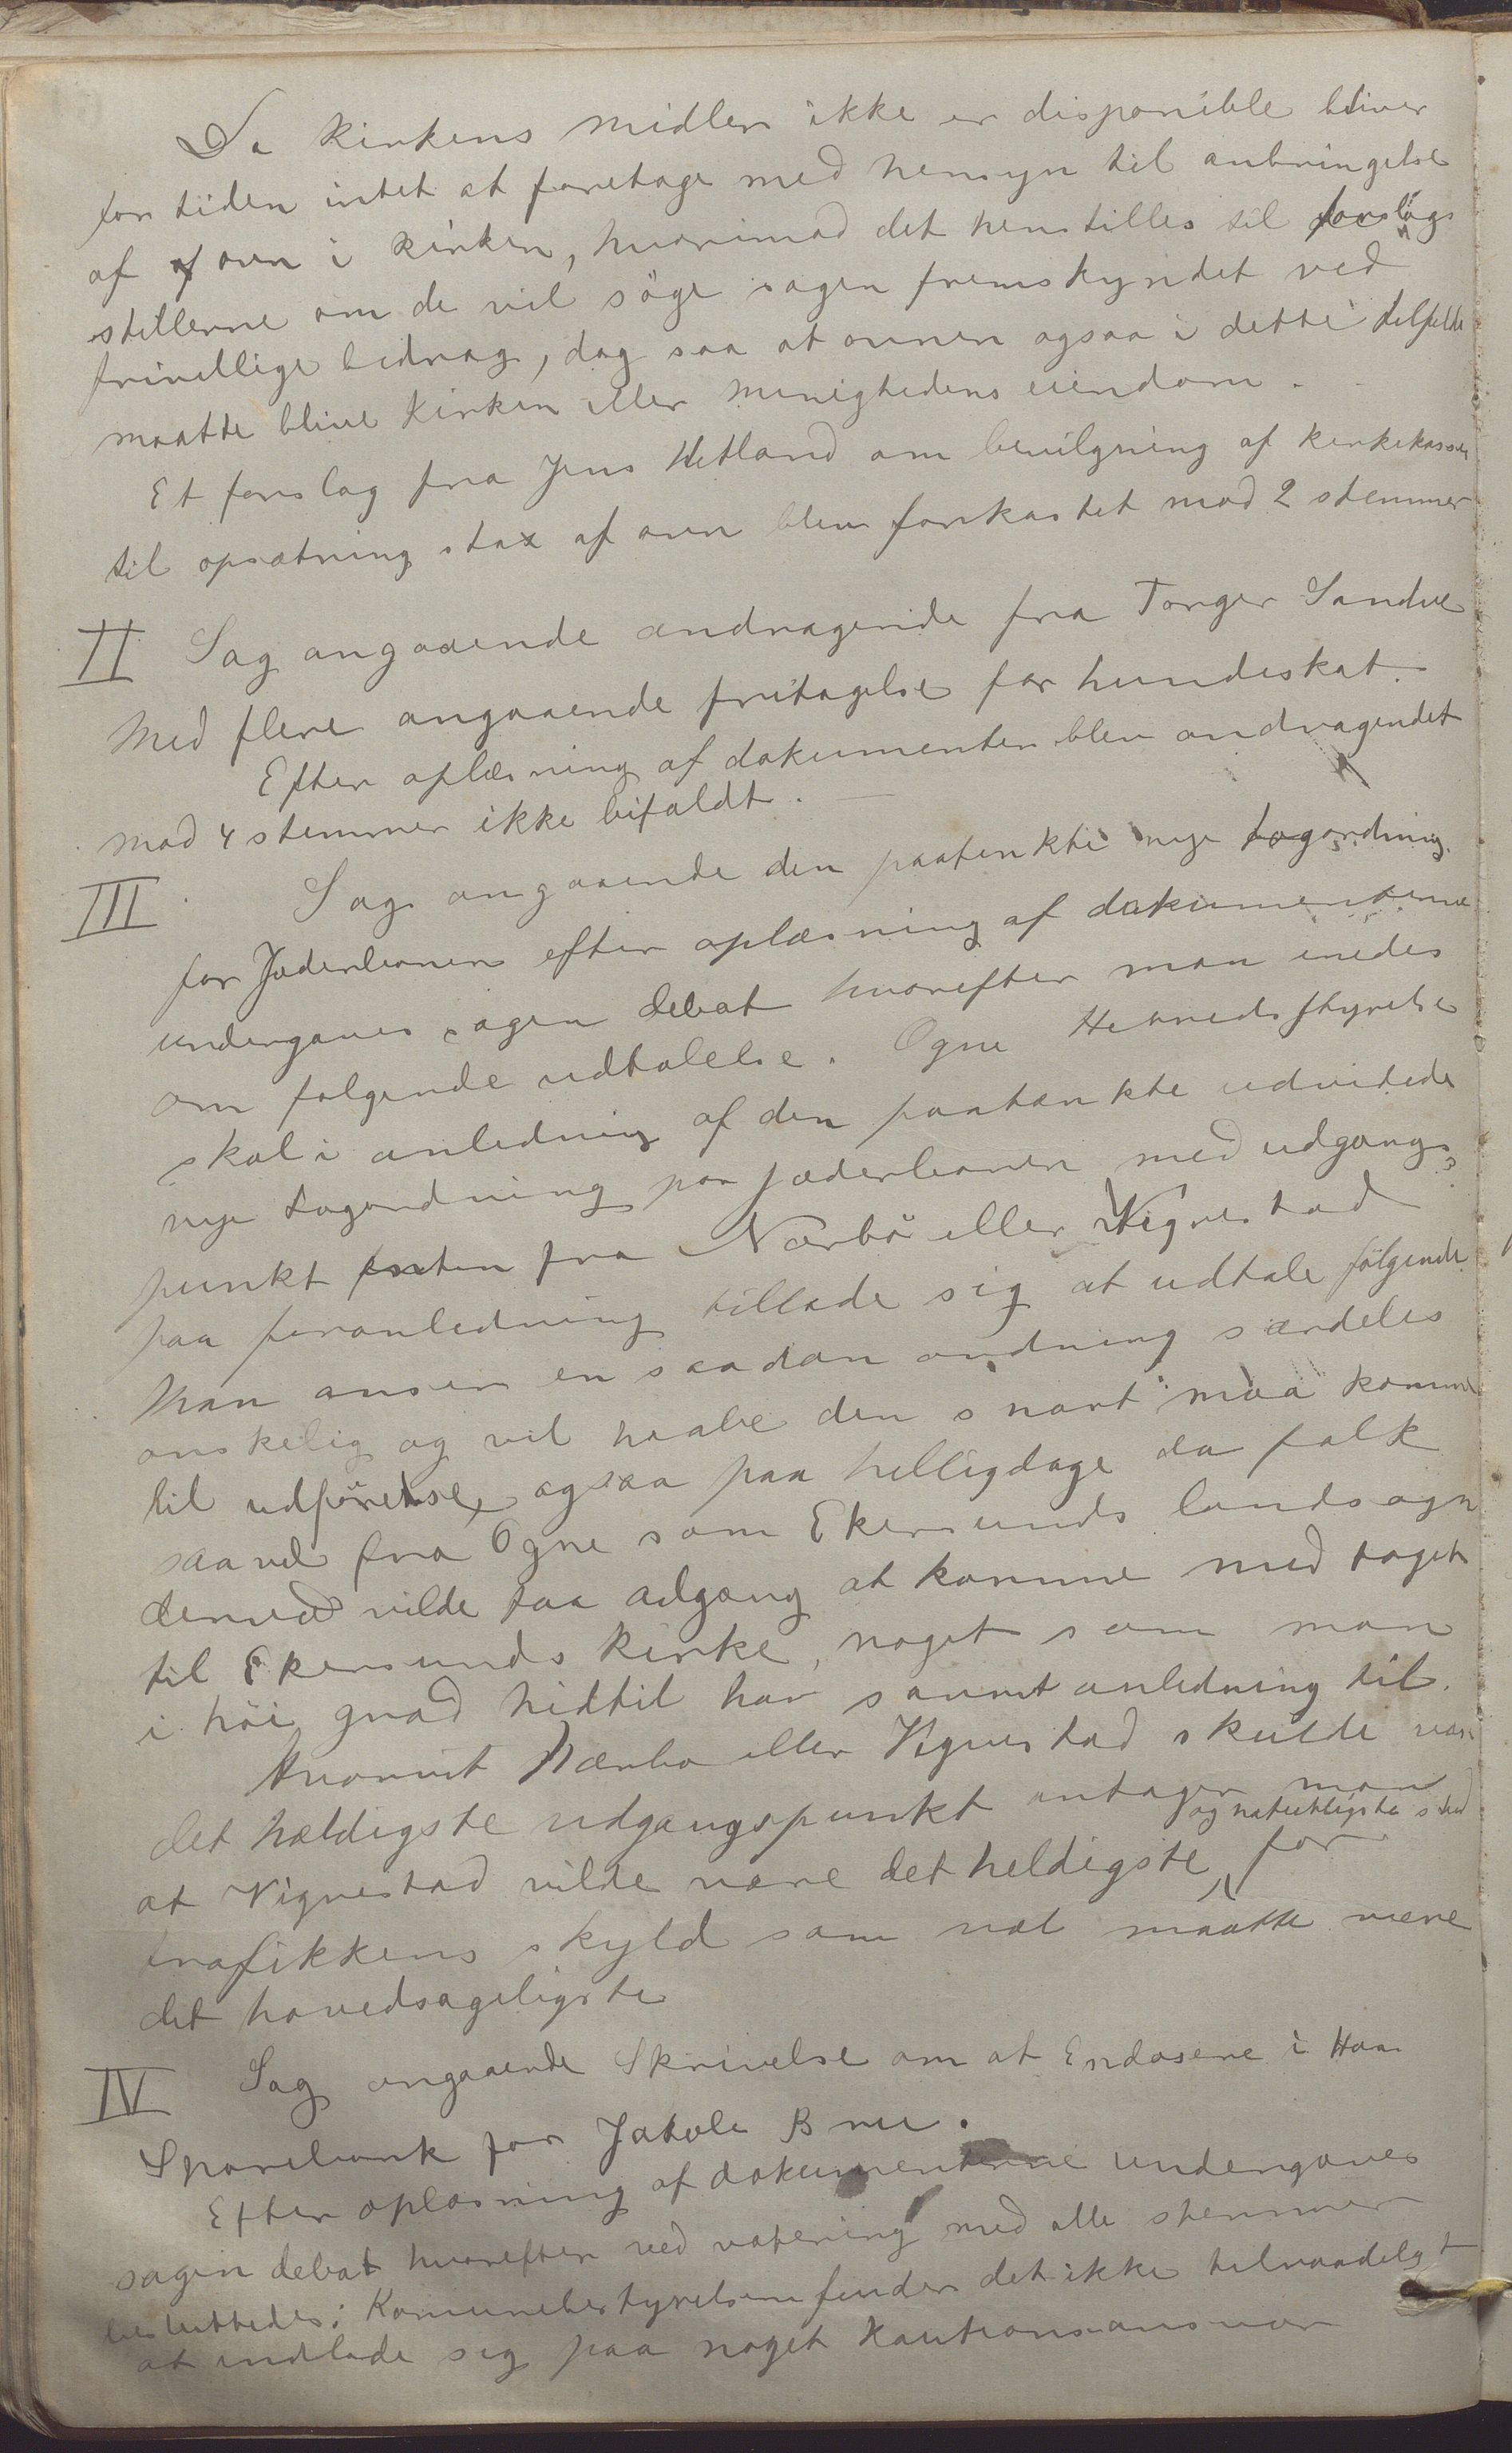 Da kirkens midler ikke er disponible bliver
for tiden intet at foretage med hensyn til anbringelse
af ovn i kirken, hvorimod det henstilles til forslags
stillerne om de vil söge sagen fremskyndet ved
frivillige bidrag, dog saa at ovnen ogsaa i dette tilfælde
maatte blive kirken eller menighedens eiendom.
Et forslag fra Jens Hetland om bevilgning af kirkekassen
til opsætning stax af ovn blev forkastet mod 2 stemmer
II Sag angaaende andragende fra Torger Sandve
med flere angaaende fritagelse for hundeskat.
Efter oplæsning af dokumenter blev andragendet
mod 4 stemmer ikke bifaldt. —
III Sag angaaende den paatenkte nye togordning
for Jæderbanen efter oplæsning af dokumenterne
undergaves sagen debat hvorefter man enedes
om folgende udtalelse. Ogne Herredsstyrelse
skal i anledning af den paatænkte udvidede
nye togordning paa Jæderbanen med udgangs
punkt enten fra Nærbö eller Vigrestad
paa foranledning tillade sig at udtale fölgende
Man anser en saadan ordning særdeles
onskelig og vil haabe den snart maa komme
til udförelse, ogsaa paa helligdage da folk
saavel fra Ogne som Ekersunds landsogn
derved vilde faa adgang at komme med toget
til Ekersunds kirke, noget som man
i höi grad hidtil har savnet anledning til.
Hvorvidt Nærbo eller Vigrestad skulde være
det heldigste udgangspunkt antager man
at Vigrestad vilde være det heldigste og naturligste sted for
trafikkens skyld som vel maatte være
det hovedsageligste
IV Sag angaaende Skrivelse om at Endosere i Haa
Sparebank for Jakob Bru.
Efter oplæsning af dokumenterne undergaves
sagen debat hvorefter ved votering med alle stemmer
besluttedes: Komunebestyrelsen finder det ikke tilraadeligt
at indlade sig paa noget kautionsansvar